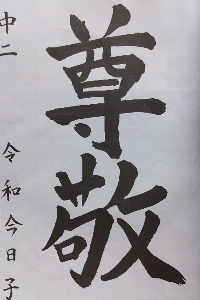 尊敬
中二 令和今日子